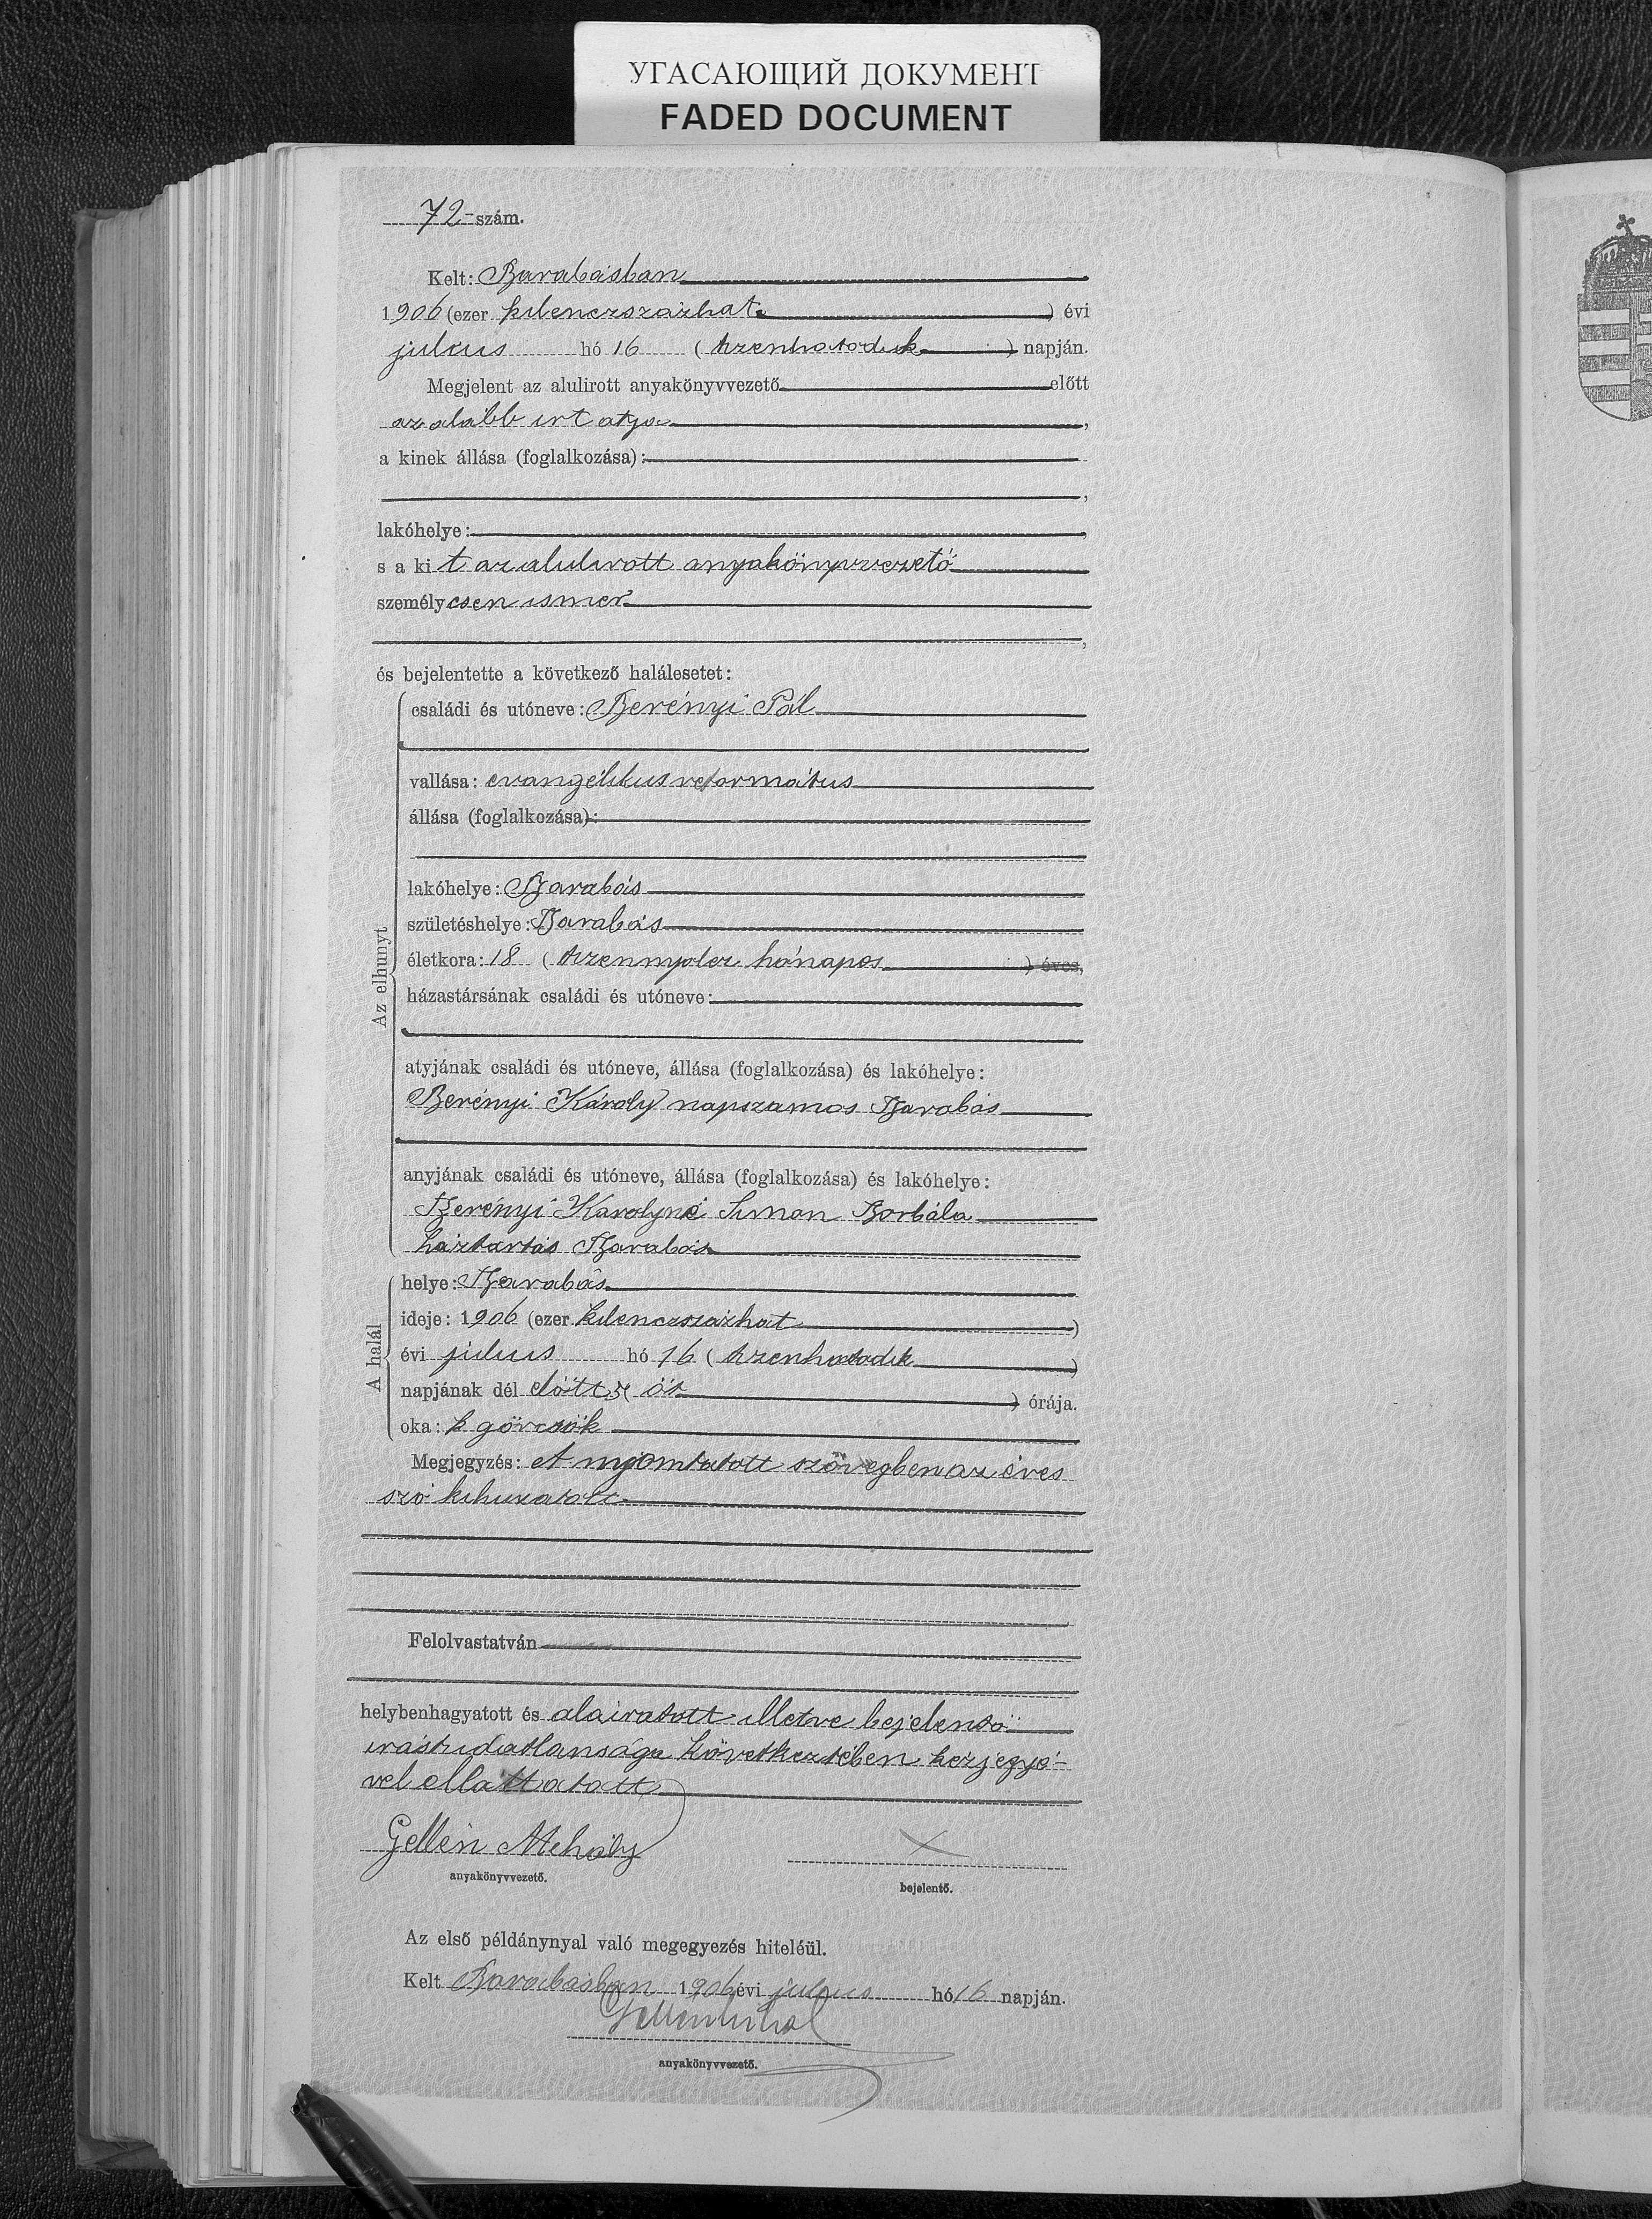 УГАСАЮЩИЙ ДОКУМЕНТ
FADED DOCUMENT
72 szám.
Kelt: Barabásban
1906 (ezer kilenczszázhat) évi
julius hó 16 (tizenhatodik) napján.
Megjelent az alulirott anyakönyvvezető előtt
az alább irt atyja,
a kinek állása (foglalkozása):
lakóhelye:
s a kit az alulirott anyakönyvvezető
személyesen ismer
és bejelentette a következő halálesetet:
Az elhunyt
családi és utóneve: Berényi Pál
vallása: evangélikus református
állása (foglalkozása):
lakóhelye: Barabás
születéshelye: Barabás
életkora: 18 (tizennyolcz hónapos) éves,
házastársának családi és utóneve:
atyjának családi és utóneve, állása (foglalkozása) és lakóhelye:
Berényi Károly napszamos Barabás
anyjának családi és utóneve, állása (foglalkozása) és lakóhelye:
Berényi Károlyné Simon Borbála
háztartás Barabás
A halál
helye: Barabás
ideje: 1906 (ezer kilenczszázhat)
évi julius hó 16 (tizenhatodik)
napjának dél előtt 5 (öt) órája.
oka: görcsök
Megjegyzés: A nyomtatott szövegben az éves
szó kihuzatott
Felolvastatván
helybenhagyatott és aláiratott illetve bejelentő
irástudatlansága következtében kézjegyé-
vel elláttatott
Gellén Mihály
anyakönyvvezető.
X
bejelentő.
Az első példánynyal való megegyezés hiteléül.
Kelt Barabásban 1906 évi julius hó 16 napján.
anyakönyvvezető.